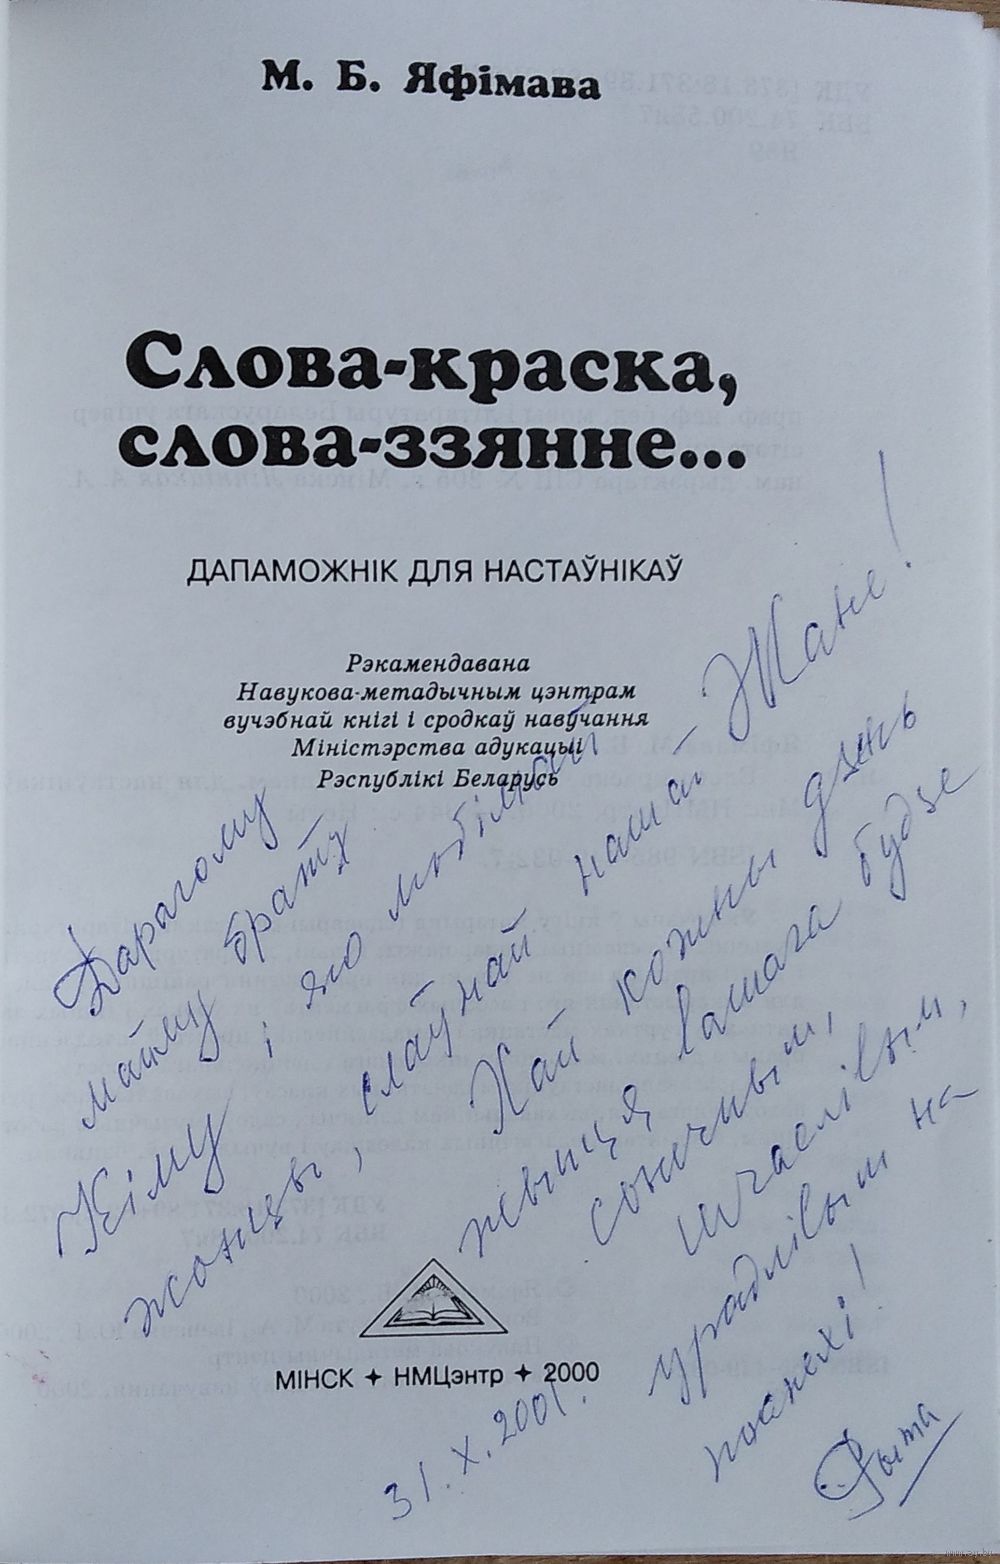 М. Б. Яфімава
Слова-краска,
слова-ззянне...
ДАПАМОЖНІК ДЛЯ НАСТАЎНІКАЎ
Рэкамендавана
Навукова-метадычным цэнтрам
вучэбнай кнігі і сродкаў навучання
Міністэрства адукацыі
Рэспублікі Беларусь
Дарагому
майму брату
Кіму і яго любімай
жонцы, слаўнай нашай – Жане!
Хай кожны дзень
жыцця вашага будзе
сонечным,
шчаслівым,
урадлівым на
поспехі!
Рыта
31. X. 2001.
МІНСК ✦ НМЦэнтр ✦ 2000